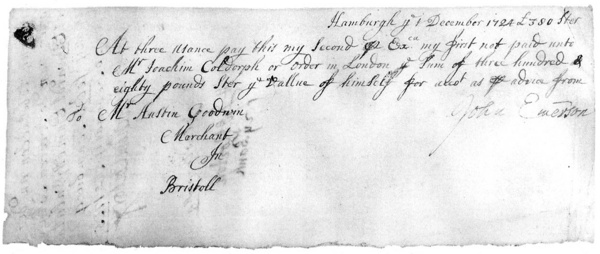 Hamburgh yᵉ 1 December 1724 £380 Ster
At three usance pay this my Second ꝑ Exca my first not paid unto
Mr Joachim Coldorph or order in London yᵉ Sum of three hundred &
eighty pounds Ster yᵉ Vallue of himself for accot as ꝑ advice from
To Mr Austin Goodwin John Emerson
Merchant
In
Bristoll